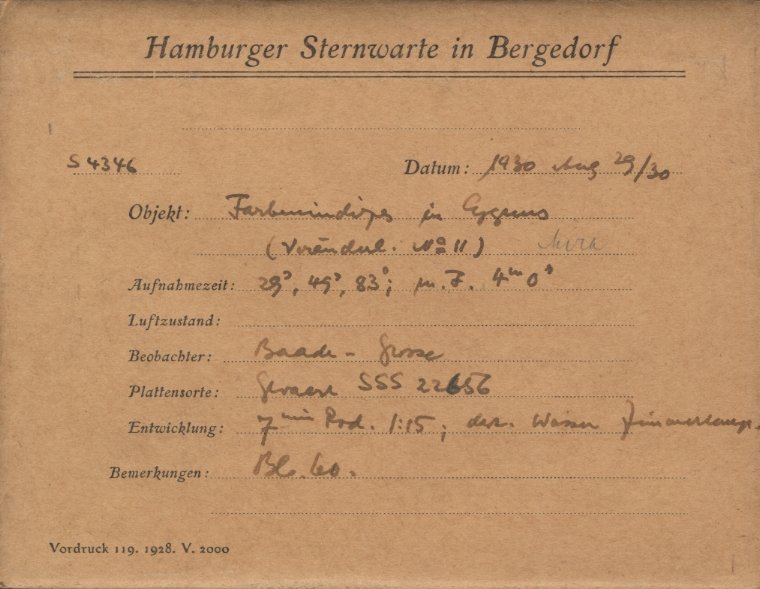 Hamburger Sternwarte in Bergedorf
S 4346 Datum: 1930 Aug 29/30
Objekt: Farbenindizes in Cygnus
(Veränderl. No 11) Mira
Aufnahmezeit: 29s, 49s, 83s; m. F. 4m 0s
Luftzustand:
Beobachter: Baade - Grosse
Plattensorte: Gevaert SSS 22656
Entwicklung: 7 min Rod. 1:15; dest. Wasser
Bemerkungen: Bl. 60.
Vordruck 119. 1928. V. 2000